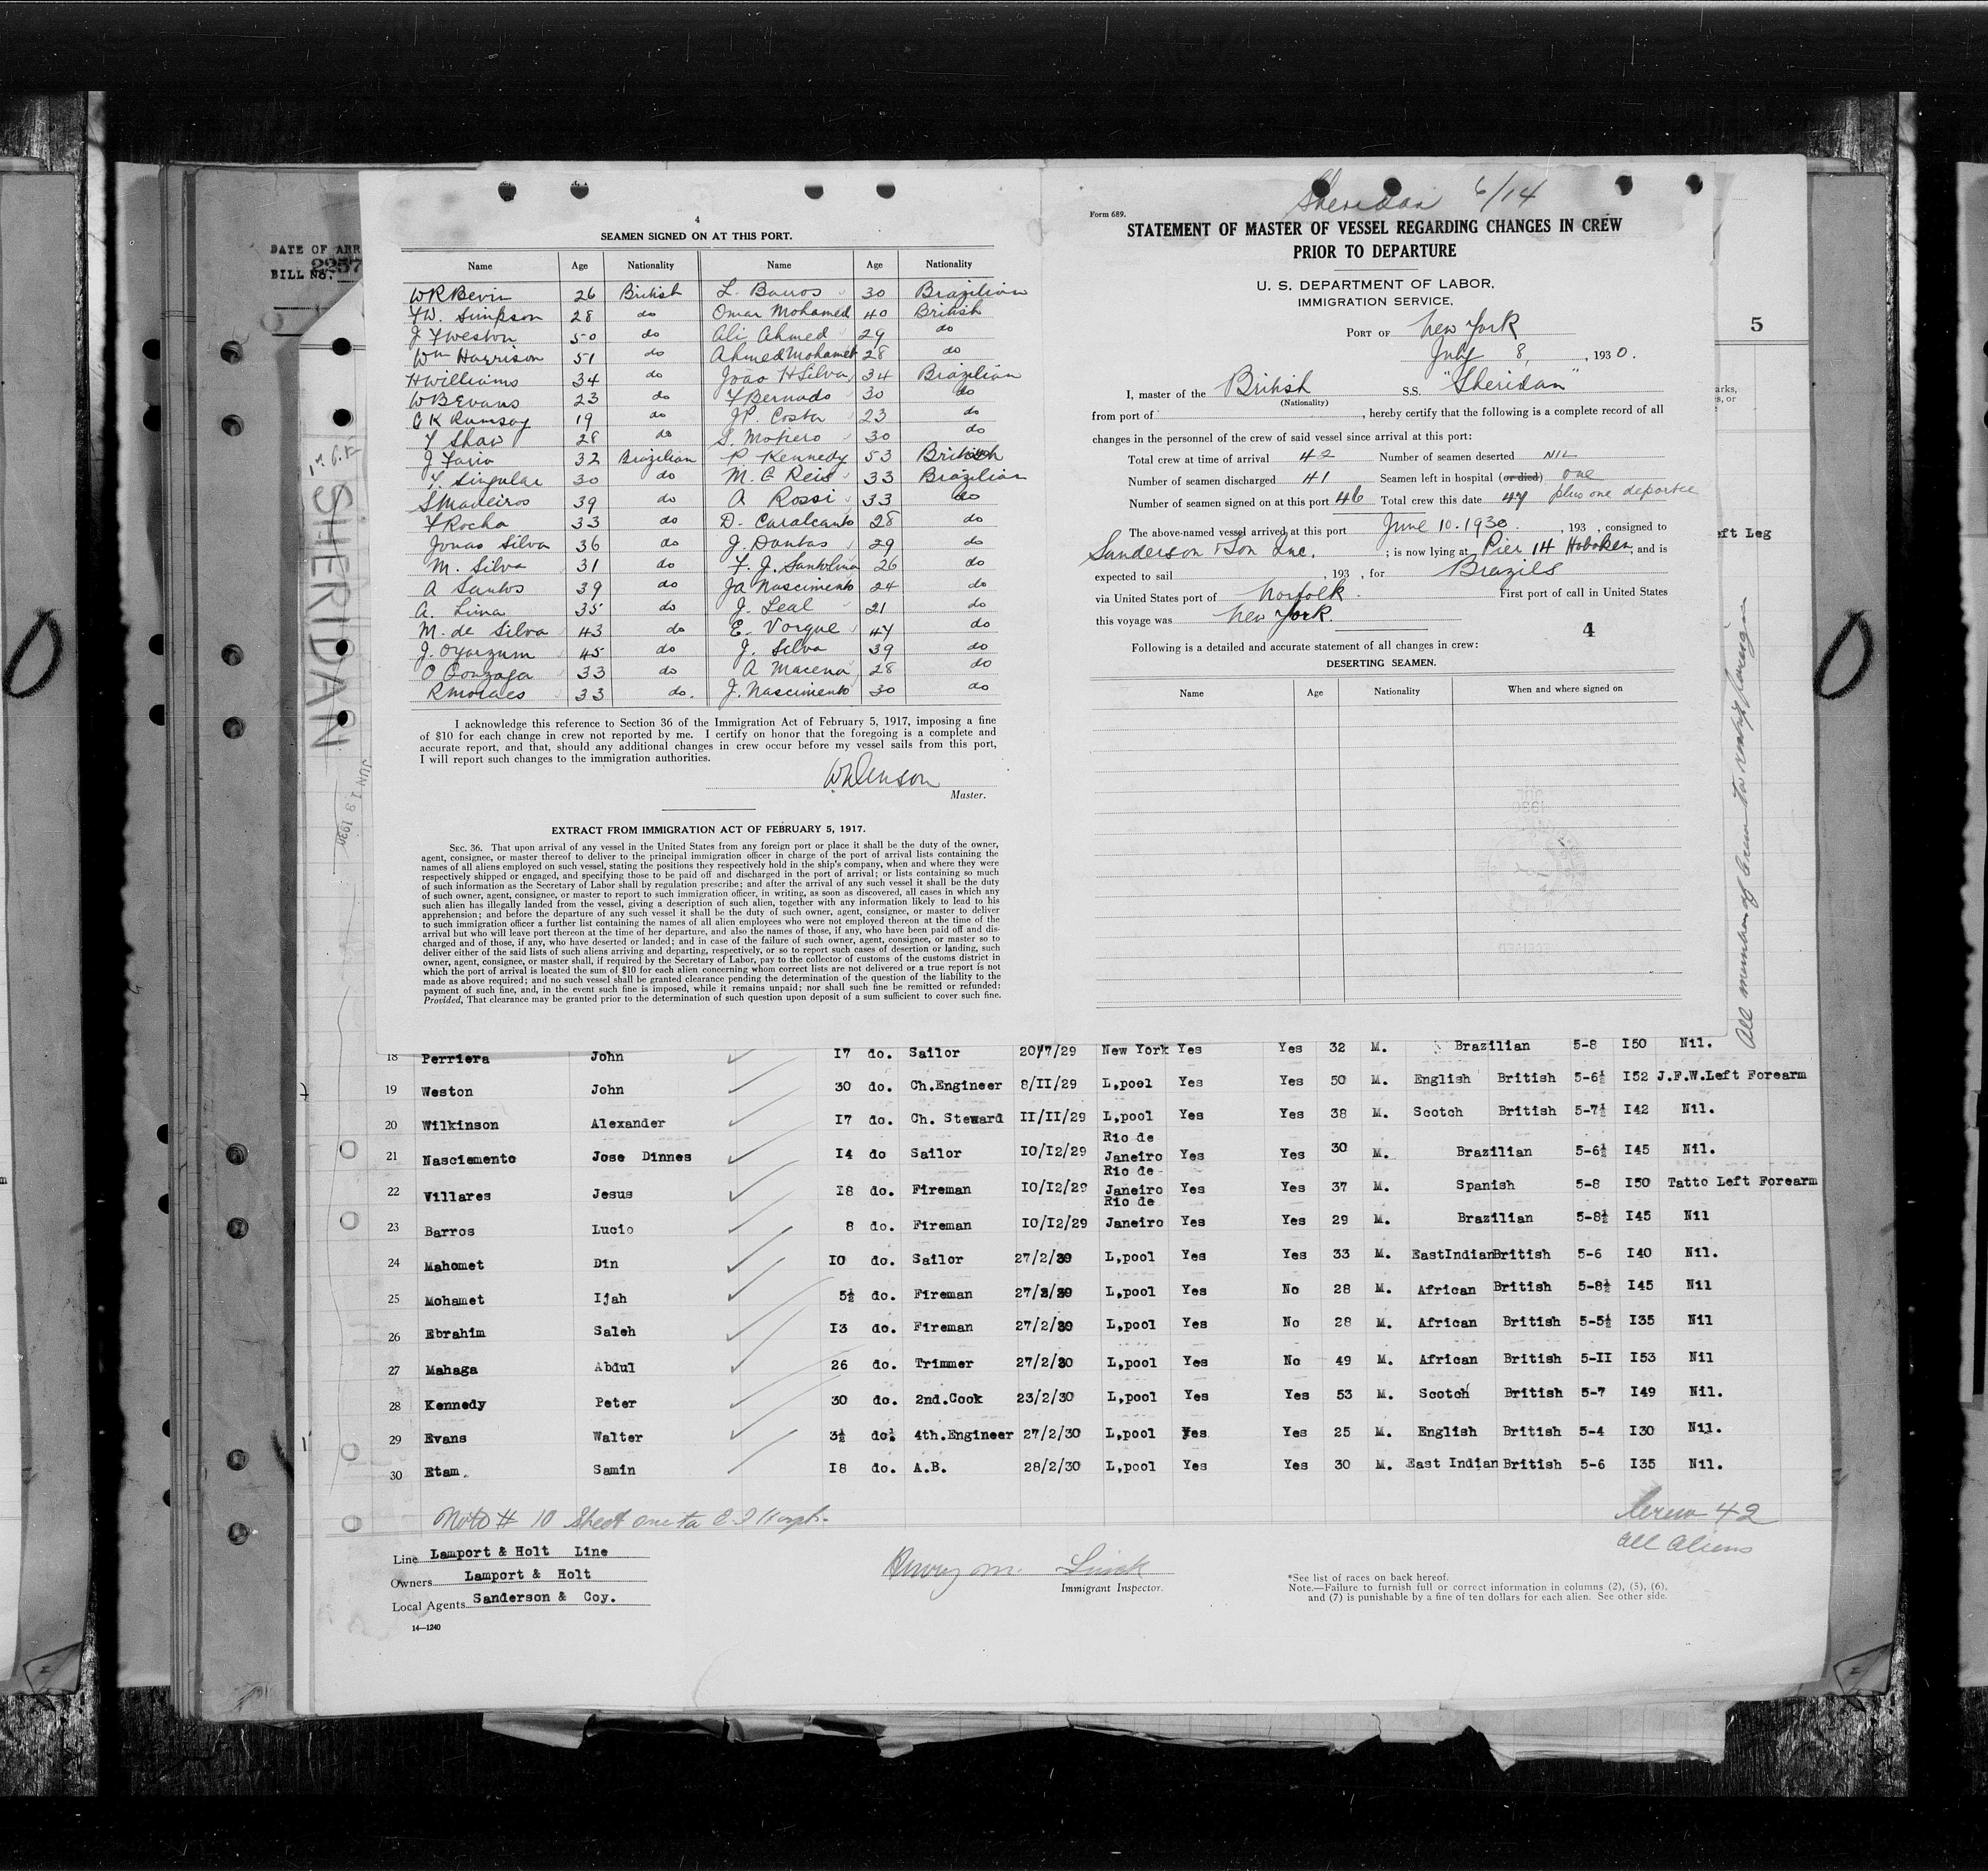 DATE OF ARR
BILL No. 2257
SHERIDAN
JUN 1 9 1930
4
SEAMEN SIGNED ON AT THIS PORT.
Name Age Nationality Name Age Nationality
W R Bevin 26 British L. Barros 30 Brazilian
F W. Simpson 28 do Omar Mohamed 40 British
J F Weston 50 do Ali Ahmed 29 do
Wm Harrison 51 do Ahmed Mohamet 28 do
H Williams 34 do João H Silva 34 Brazilian
W B Evans 23 do F Bernado 30 do
C K Ramsay 19 do J P. Costa 23 do
F Shaw 28 do S. Mofiero 30 do
J Faria 32 Brazilian P Kennedy 53 British
F. Singular 30 do M. C Reis 33 Brazilian
S Madeiros 39 do A Rossi 33 do
F Rocha 33 do D. Caralcanto 28 do
Jonas Silva 36 do J. Dantas 29 do
M. Silva 31 do F. J. Santolina 26 do
A Santos 39 do Ja Nascimento 24 do
A. Lima 35 do J. Leal 21 do
M. de Silva 43 do E. Vorgue 47 do
J. Oyarzum 45 do J. Silva 39 do
O Gonzaga 33 do A Macena 28 do
R Moraes 33 do. J. Nascimento 30 do
I acknowledge this reference to Section 36 of the Immigration Act of February 5, 1917, imposing a fine
of $10 for each change in crew not reported by me. I certify on honor that the foregoing is a complete and
accurate report, and that, should any additional changes in crew occur before my vessel sails from this port,
I will report such changes to the immigration authorities.
Master.
EXTRACT FROM IMMIGRATION ACT OF FEBRUARY 5, 1917.
SEC. 36. That upon arrival of any vessel in the United States from any foreign port or place it shall be the duty of the owner,
agent, consignee, or master thereof to deliver to the principal immigration officer in charge of the port of arrival lists containing the
names of all aliens employed on such vessel, stating the positions they respectively hold in the ship's company, when and where they were
respectively shipped or engaged, and specifying those to be paid off and discharged in the port of arrival; or lists containing so much
of such information as the Secretary of Labor shall by regulation prescribe; and after the arrival of any such vessel it shall be the duty
of such owner, agent, consignee, or master to report to such immigration officer, in writing, as soon as discovered, all cases in which any
such alien has illegally landed from the vessel, giving a description of such alien, together with any information likely to lead to his
apprehension; and before the departure of any such vessel it shall be the duty of such owner, agent, consignee, or master to deliver
to such immigration officer a further list containing the names of all alien employees who were not employed thereon at the time of the
arrival but who will leave port thereon at the time of her departure, and also the names of those, if any, who have been paid off and dis-
charged and of those, if any, who have deserted or landed; and in case of the failure of such owner, agent, consignee, or master so to
deliver either of the said lists of such aliens arriving and departing, respectively, or so to report such cases of desertion or landing, such
owner, agent, consignee, or master shall, if required by the Secretary of Labor, pay to the collector of customs of the customs district in
which the port of arrival is located the sum of $10 for each alien concerning whom correct lists are not delivered or a true report is not
made as above required; and no such vessel shall be granted clearance pending the determination of the question of the liability to the
payment of such fine, and, in the event such fine is imposed, while it remains unpaid; nor shall such fine be remitted or refunded:
Provided, That clearance may be granted prior to the determination of such question upon deposit of a sum sufficient to cover such fine.
Sheridan 6/14
Form 689.
STATEMENT OF MASTER OF VESSEL REGARDING CHANGES IN CREW
PRIOR TO DEPARTURE
U. S. DEPARTMENT OF LABOR,
IMMIGRATION SERVICE,
PORT OF New York
July 8, , 1930.
I, master of the British S.S. "Sheridan"
(Nationality)
from port of , hereby certify that the following is a complete record of all
changes in the personnel of the crew of said vessel since arrival at this port:
Total crew at time of arrival 42 Number of seamen deserted NIL
Number of seamen discharged 41 Seamen left in hospital (or died) one
Number of seamen signed on at this port 46 Total crew this date 47 plus one deportee
The above-named vessel arrived at this port June 10. 1930. , 193 , consigned to
Sanderson & Son Inc. ; is now lying at Pier 14 Hoboken, and is
expected to sail , 193 , for Brazils
via United States port of Norfolk. First port of call in United States
this voyage was New York.
4
Following is a detailed and accurate statement of all changes in crew:
DESERTING SEAMEN.
Name Age Nationality When and where signed on
5
arks,
s, or
eft Leg
All members of crew to reship foreign
18 Perriera John 17 do. Sailor 20/7/29 New York Yes Yes 32 M. Brazilian 5-8 I50 Nil.
19 Weston John 30 do. Ch.Engineer 8/II/29 L,pool Yes Yes 50 M. English British 5-6½ I52 J.F.W.Left Forearm
20 Wilkinson Alexander I7 do. Ch. Steward II/II/29 L,pool Yes Yes 38 M. Scotch British 5-7½ I42 Nil.
21 Nasciemento Jose Dinnes I4 do Sailor I0/I2/29 Rio de Janeiro Yes Yes 30 M. Brazilian 5-6½ I45 Nil.
22 Villares Jesus I8 do. Fireman I0/I2/29 Rio de Janeiro Yes Yes 37 M. Spanish 5-8 I50 Tatto Left Forearm
23 Barros Lucio 8 do. Fireman I0/I2/29 Rio de Janeiro Yes Yes 29 M. Brazilian 5-8½ I45 Nil
24 Mahomet Din I0 do. Sailor 27/2/30 L,pool Yes Yes 33 M. EastIndian British 5-6 I40 Nil.
25 Mohamet Ijah 5½ do. Fireman 27/2/30 L,pool Yes No 28 M. African British 5-8½ I45 Nil
26 Ebrahim Saleh I3 do. Fireman 27/2/30 L,pool Yes No 28 M. African British 5-5½ I35 Nil
27 Mahaga Abdul 26 do. Trimmer 27/2/30 L,pool Yes No 49 M. African British 5-II I53 Nil
28 Kennedy Peter 30 do. 2nd.Cook 23/2/30 L,pool Yes Yes 53 M. Scotch British 5-7 I49 Nil.
29 Evans Walter 3½ do. 4th.Engineer 27/2/30 L,pool Yes Yes 25 M. English British 5-4 I30 Nil.
30 Etam. Samin I8 do. A.B. 28/2/30 L,pool Yes Yes 30 M. East Indian British 5-6 I35 Nil.
Note # 10 Sheet one
Crew 42
all aliens
Line Lamport & Holt Line
Owners Lamport & Holt
Local Agents Sanderson & Coy.
14—1240
Henry M.
Immigrant Inspector.
*See list of races on back hereof.
Note.—Failure to furnish full or correct information in columns (2), (5), (6),
and (7) is punishable by a fine of ten dollars for each alien. See other side.